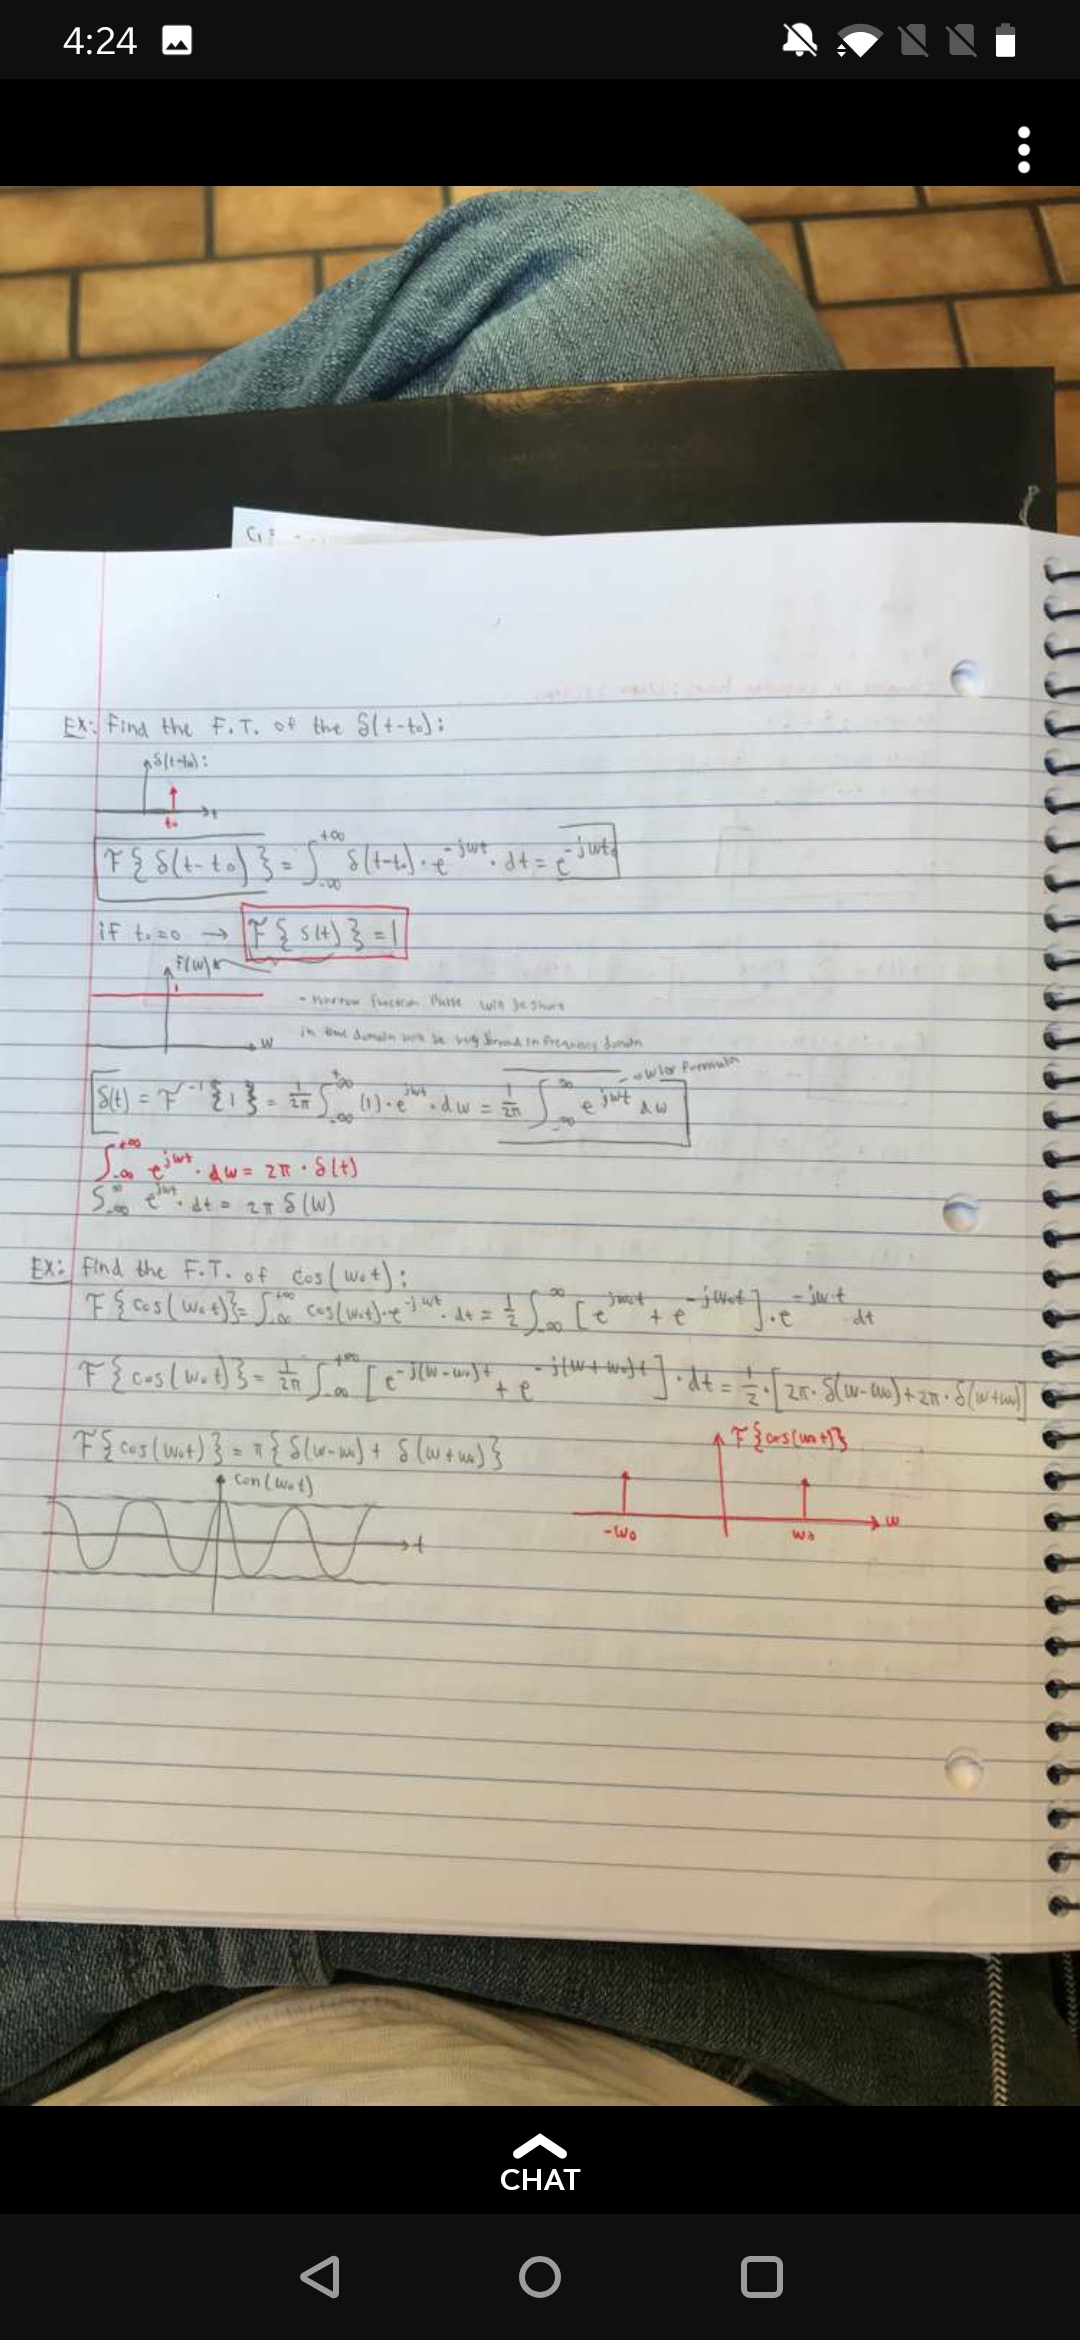 4:24
C1 =
EX: Find the F.T. of the δ(t-t₀):
δ(t-t₀):
t
t₀
F{δ(t-t₀)} = ∫_-∞^+∞ δ(t-t₀)·e^-jwt · dt = e^-jwt₀
if t₀=0 → F{δ(t)} = 1
F(w)
1
- narrow function pulse will be short
w
in time domain will be very broad in frequency domain
formula
δ(t) = F^-1{1} = 1/2π ∫_-∞^+∞ (1)·e^jwt · dw = 1/2π ∫_-∞^∞ e^jwt dw
∫_-∞^+∞ e^jwt · dw = 2π · δ(t)
∫_-∞^∞ e^jwt · dt = 2π δ(w)
EX: Find the F.T. of cos(w₀t):
F{cos(w₀t)} = ∫_-∞^+∞ cos(w₀t)·e^-jwt · dt = 1/2 ∫_-∞^∞ [e^jw₀t + e^-jw₀t]·e^-jwt dt
F{cos(w₀t)} = 1/2π ∫_-∞^+∞ [e^-j(w-w₀)t + e^-j(w+w₀)t]·dt = 1/2·[2π·δ(w-w₀)+2π·δ(w+w₀)]
F{cos(w₀t)} = π{δ(w-w₀) + δ(w+w₀)}
F{cos(w₀t)}
con(w₀t)
-w₀
w₀
w
t
CHAT